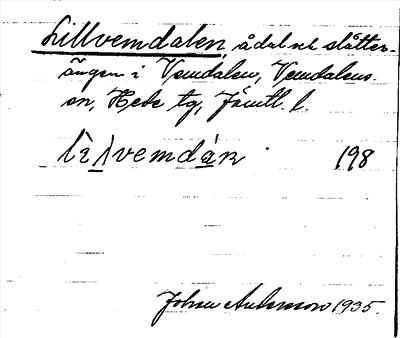 Lillvemdalen, ådal och slåtter-
ängen i Vemdalen, Vemdalens
sn, Hede tg, Jämtl. l.
lìlvemdán 198
Johan Andersson 1935.